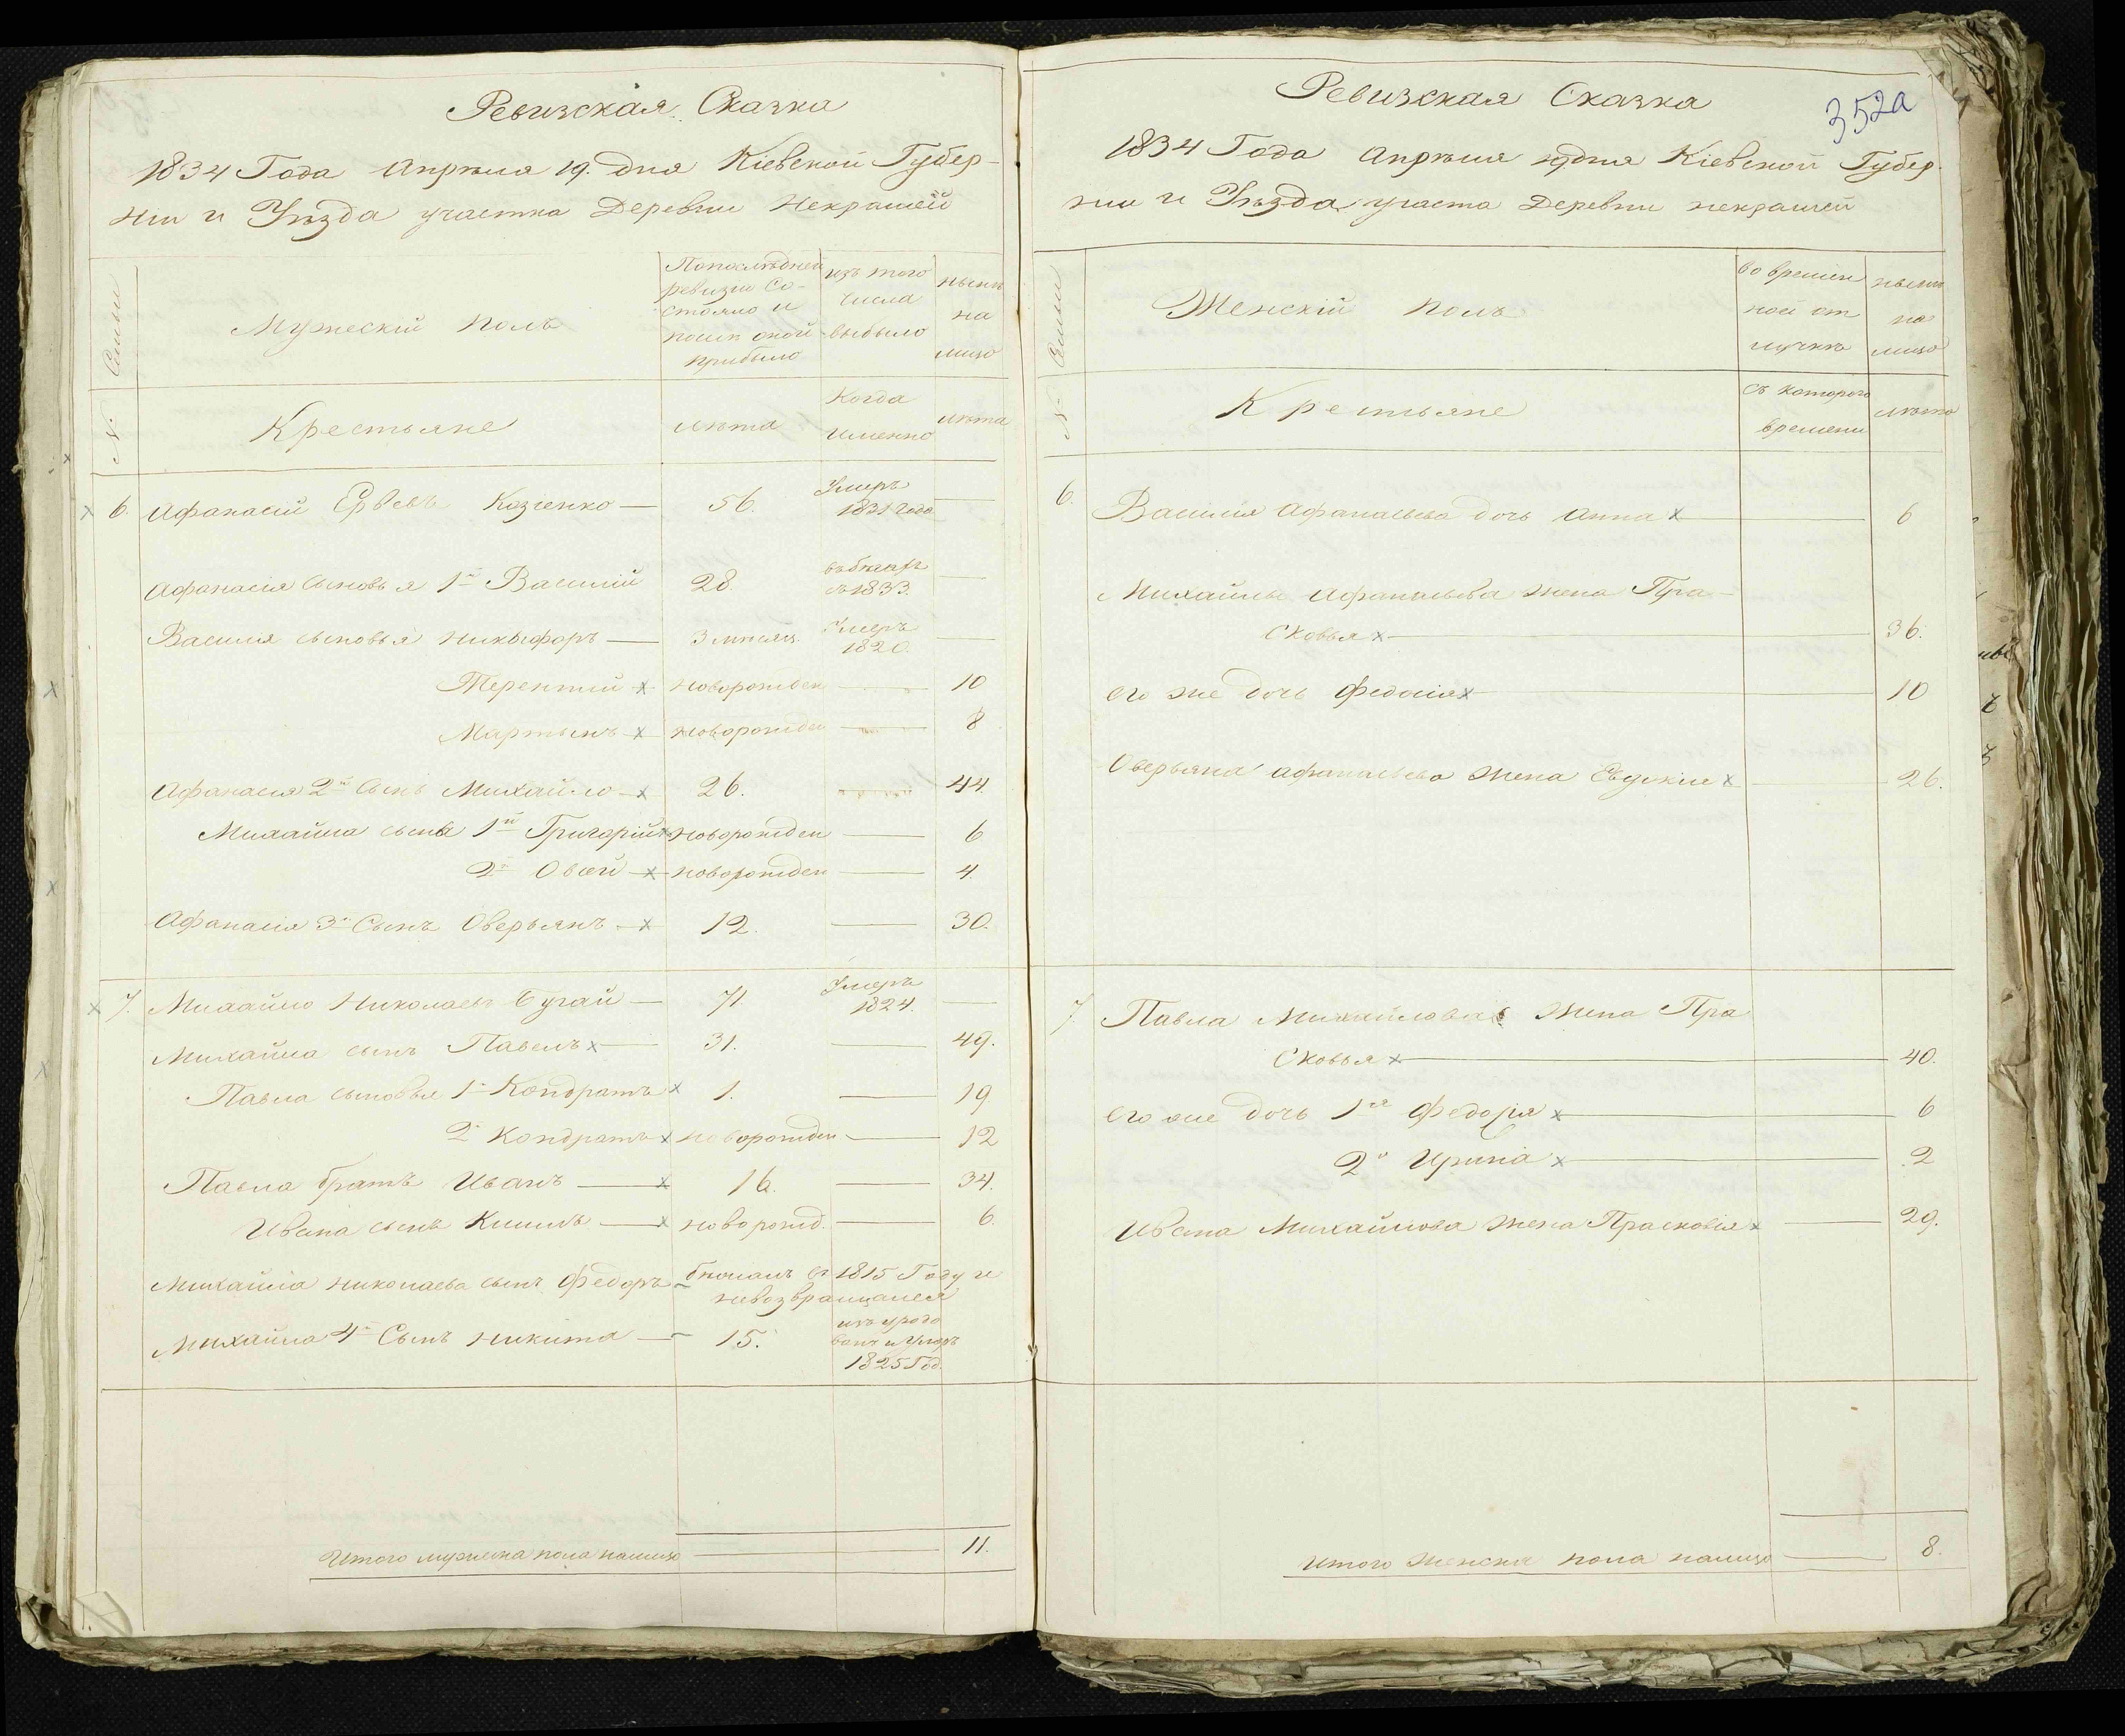 Ревизская Сказка
1834 Года Апрѣля 19. дня Кіевской Губер-
ніи и Уѣзда участка Деревни Некрашей
№ Семьи
Мужескій полъ
По последней
ревизіи со-
стояло и
после оной
прибыло
изъ того
числа
выбыло
нынѣ
на
лицо
Крестьяне
лѣта
Когда
именно
лѣта
6. Афанасій Козченко — 56. Умеръ 1831 года —
Афанасія сыновья 1й Василій 28. въ 1833. —
Василія сыновья Никыфоръ — 3 месяц. Умеръ 1820. —
Терентій х новорожден — 10
Мартынъ х новорожден — 8
Афанасія 2й сынъ Михайло х 26. — 44.
Михайла сынъ 1й Григорій х новорожден — 6
2й х новорожден — 4.
Афанасія 3й Сынъ Оверьянъ х 12. — 30.
7. Михайло Николаевъ Бугай — 71. Умеръ 1824. —
Михайла сынъ Павелъ х — 31. — 49.
Павла сыновья 1й Кондратъ х 1. — 19
2й Кондратъ х новорожден — 12
Павла братъ Иванъ — х 16. — 34.
Ивана сынъ — х новорожд. — 6.
Михайла Николаева сынъ Федоръ — въ 1815 Году и
невозвращался
Михайла 4й Сынъ Никита — 15. Умеръ
1825 Год.
Итого мужеска пола налицо — 11.
Ревизская Сказка
352а
1834 Года Апрѣля 19 дня Кіевской Губер-
ніи и Уѣзда участа Деревни некрашей
№ Семьи
Женскій полъ
во времен
ной от
лучкѣ
нынѣ
на
лицо
Крестьяне
съ которого
времени
лѣта
6. Василія Афанасьева дочь Анна х — 6
Михайлы Афанасьева жена Пра-
сковья х — 36.
его же дочь Федосія х — 10
Оверьяна Афанасьева жена Евдокія х — 26.
7. Павла Михайлова жена Пра
сковья х — 40.
его же дочь 1я х — 6
2я Ирина х — 2
Ивана Михайлова жена Прасковія х — 29.
Итого женска пола налицо — 8.